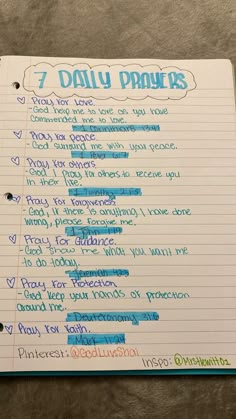 7 DAILY PRAYERS
Pray for love.
-God help me to love as you have
commended me to love.
1 Corinthians
Pray for peace
-God surround me with your peace.
Pray for others
-God I pray for others to receive you
in their life.
1 Timothy
Pray for Forgiveness
-God, if there is anything I have done
wrong, please forgive me.
1 John
Pray for Guidance.
-God show me what you want me
to do today.
Jeremiah
Pray for Protection
-God keep your hands of protection
around me.
Deuteronomy 31:6
Pray for faith.
Mark 11:24
Pinterest: @GodLuvsShai
Inspo: